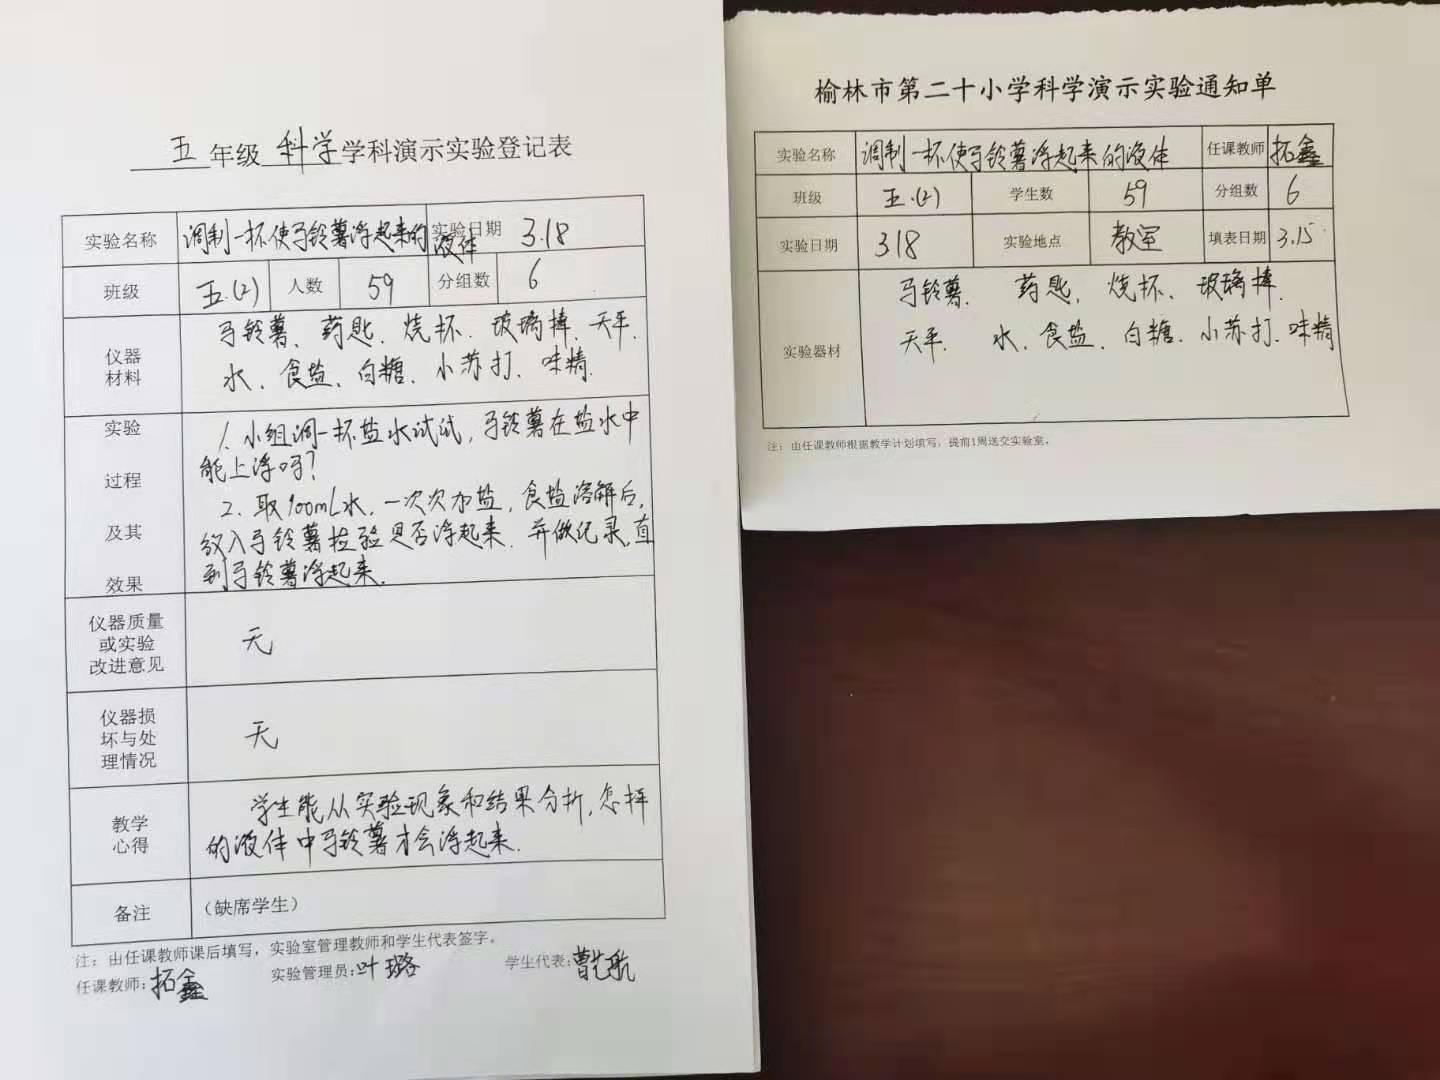 五年级科学学科演示实验登记表
实验名称 调制一杯使马铃薯浮起来的液体 实验日期 3.18
班级 五.(2) 人数 59 分组数 6
仪器材料
马铃薯、药匙、烧杯、玻璃棒、天平、
水、食盐、白糖、小苏打、味精.
实验过程及其效果
1. 小组调一杯盐水试试,马铃薯在盐水中
能上浮吗?
2. 取100mL水,一次次加盐,食盐溶解后,
放入马铃薯检验是否浮起来.并做纪录,直
到马铃薯浮起来.
仪器质量或实验改进意见 无
仪器损坏与处理情况 无
教学心得
学生能从实验现象和结果分析,怎样
的液体中马铃薯才会浮起来.
备注 (缺席学生)
注:由任课教师课后填写,实验室管理教师和学生代表签字。
任课教师:拓鑫 实验管理员:叶璐 学生代表:曹艺航
榆林市第二十小学科学演示实验通知单
实验名称 调制一杯使马铃薯浮起来的液体 任课教师 拓鑫
班级 五.(2) 学生数 59 分组数 6
实验日期 3.18 实验地点 教室 填表日期 3.15
实验器材
马铃薯、药匙、烧杯、玻璃棒、
天平、水、食盐、白糖、小苏打、味精
注:由任课教师根据教学计划填写,提前1周送交实验室。